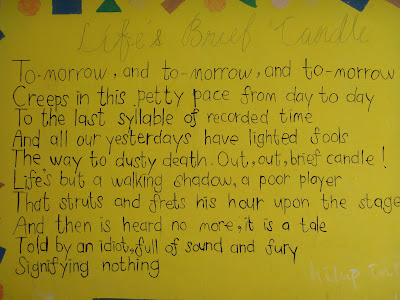 Life's Brief Candle
To-morrow, and to-morrow, and to-morrow
Creeps in this petty pace from day to day
To the last syllable of recorded time
And all our yesterdays have lighted fools
The way to dusty death. Out, out, brief candle!
Life's but a walking shadow, a poor player
That struts and frets his hour upon the stage
And then is heard no more, it is a tale
Told by an idiot, full of sound and fury
Signifying nothing